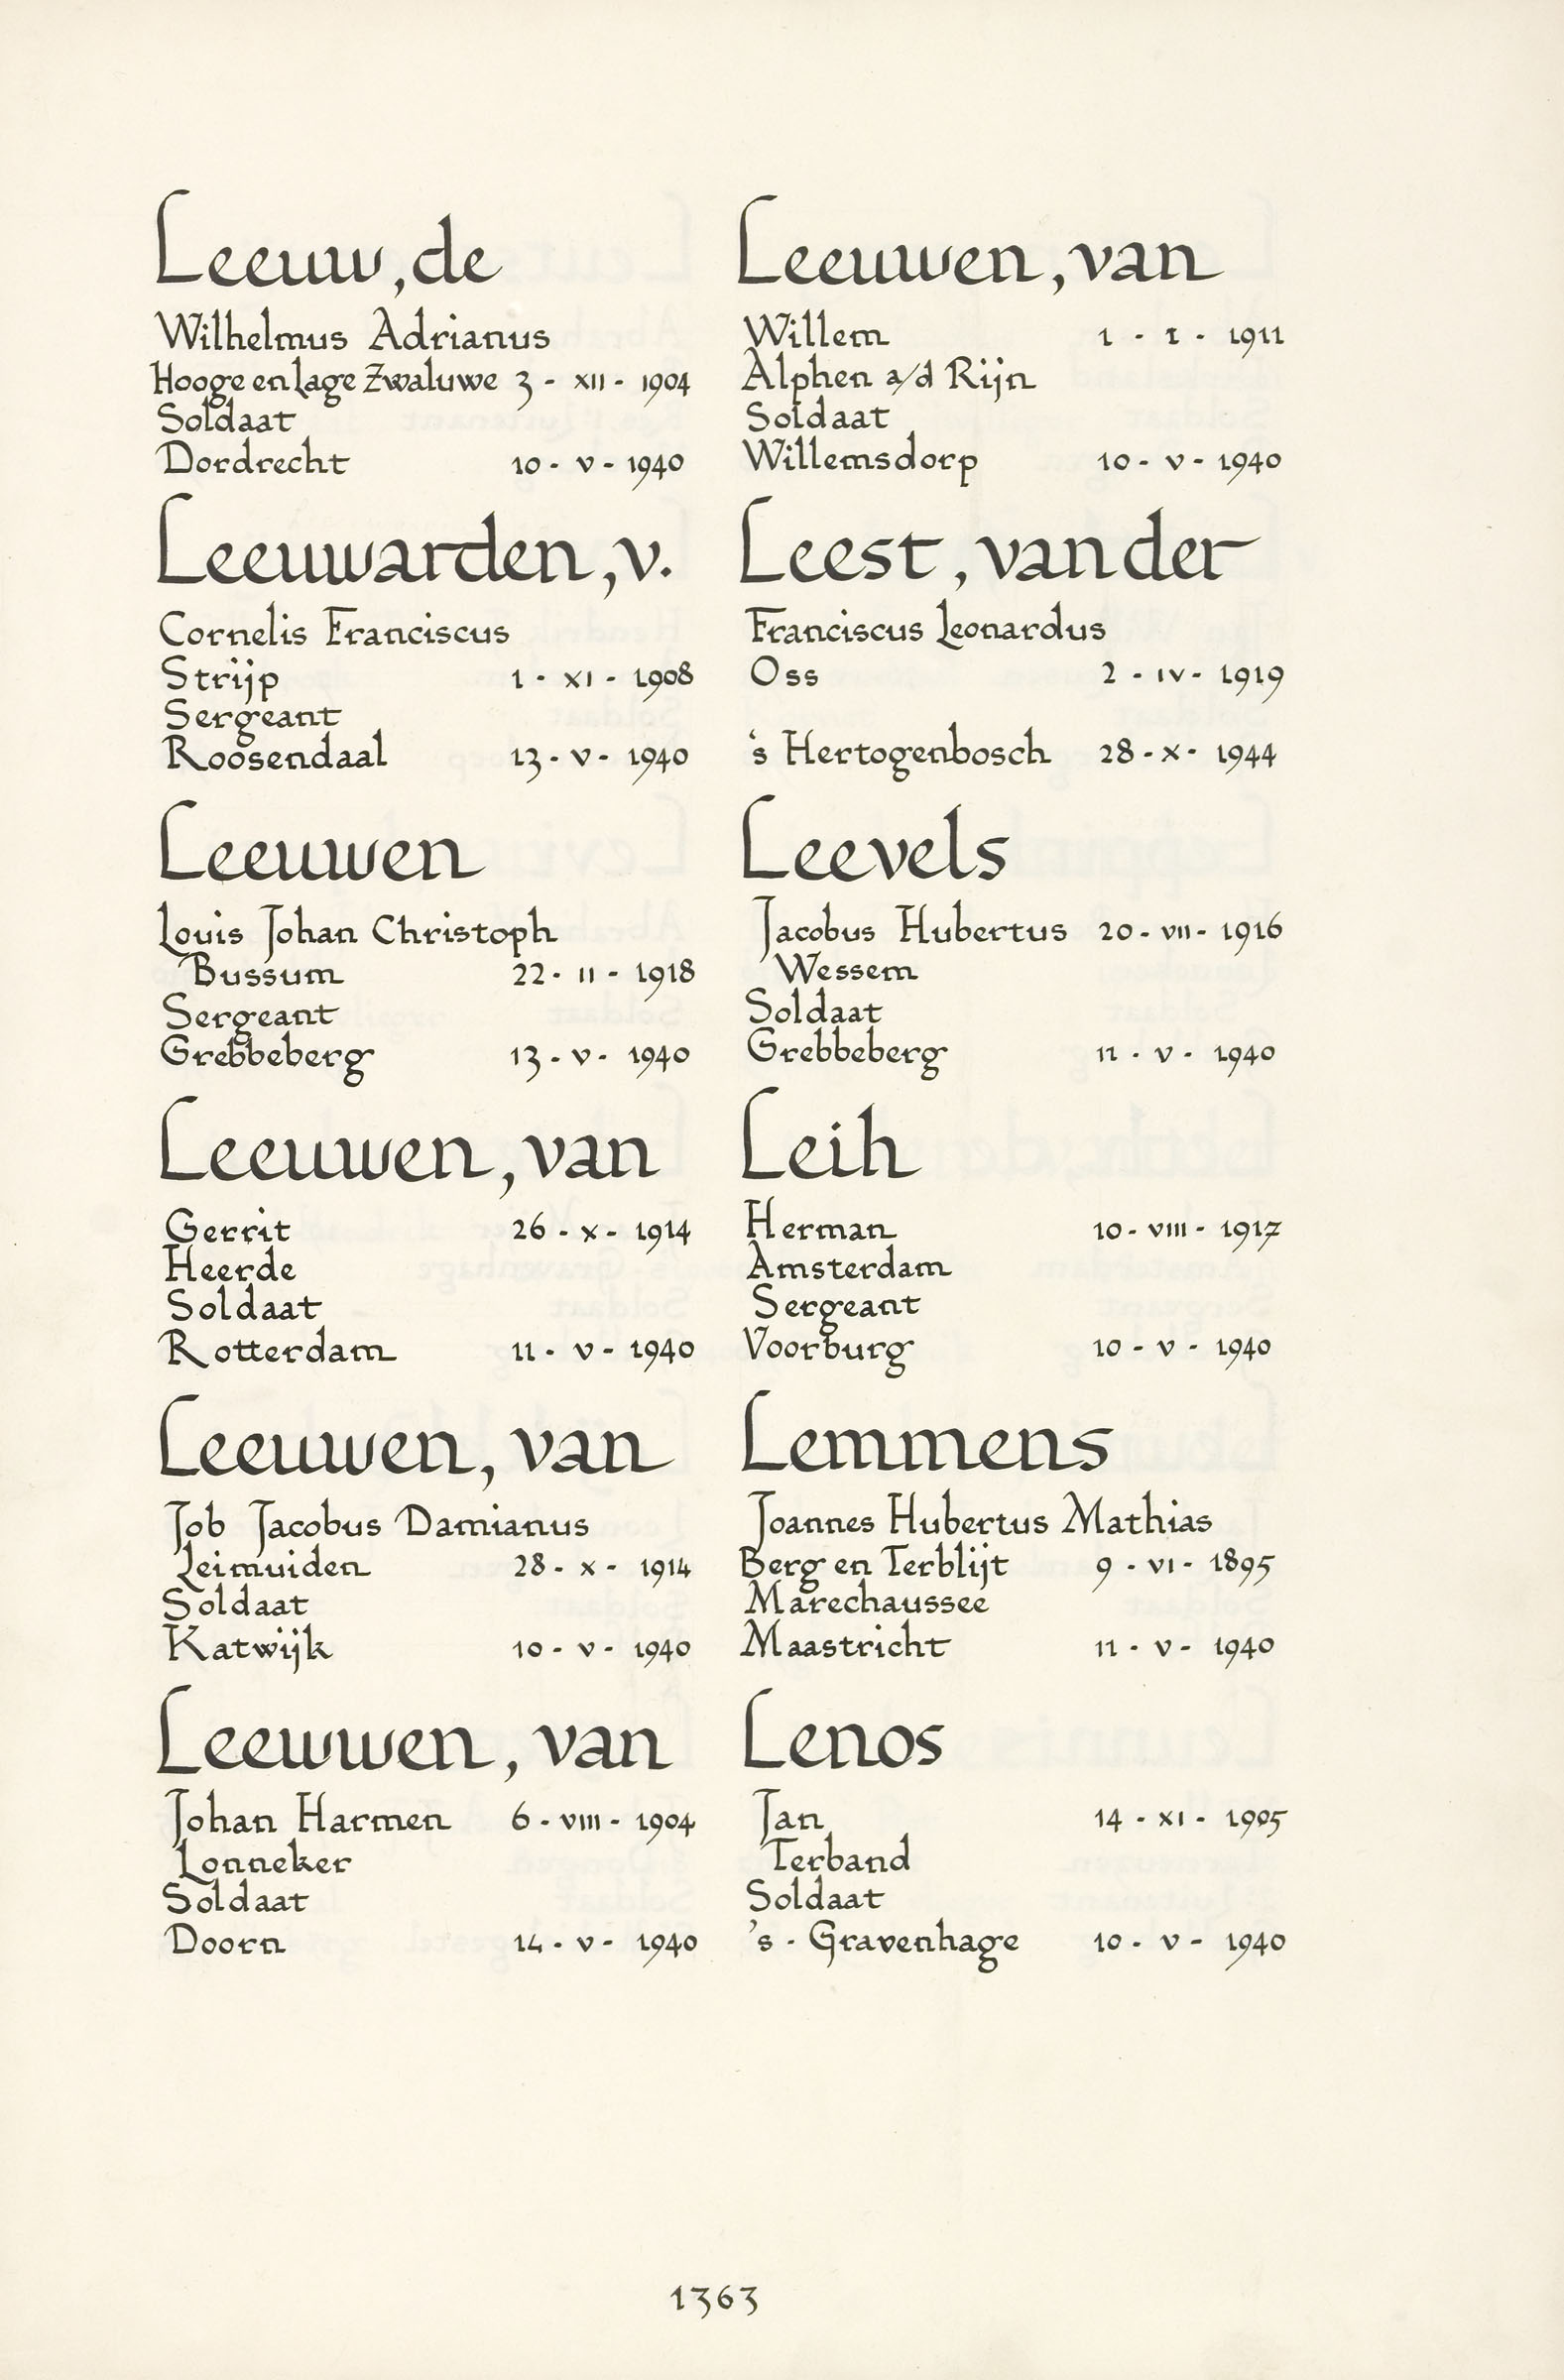 Leeuw, de
Wilhelmus Adrianus
Hooge en Lage Zwaluwe 3 - XII - 1904
Soldaat
Dordrecht 10 - V - 1940
Leeuwarden, v.
Cornelis Franciscus
Strijp 1 - XI - 1908
Sergeant
Roosendaal 13 - V - 1940
Leeuwen
Louis Johan Christoph
Bussum 22 - II - 1918
Sergeant
Grebbeberg 13 - V - 1940
Leeuwen, van
Gerrit 26 - X - 1914
Heerde
Soldaat
Rotterdam 11 - V - 1940
Leeuwen, van
Job Jacobus Damianus
Leimuiden 28 - X - 1914
Soldaat
Katwijk 10 - V - 1940
Leeuwen, van
Johan Harmen 6 - VIII - 1904
Lonneker
Soldaat
Doorn 14 - V - 1940
Leeuwen, van
Willem 1 - I - 1911
Alphen a/d Rijn
Soldaat
Willemsdorp 10 - V - 1940
Leest, van der
Franciscus Leonardus
Oss 2 - IV - 1919
's Hertogenbosch 28 - X - 1944
Leevels
Jacobus Hubertus 20 - VII - 1916
Wessem
Soldaat
Grebbeberg 11 - V - 1940
Leih
Herman 10 - VIII - 1917
Amsterdam
Sergeant
Voorburg 10 - V - 1940
Lemmens
Joannes Hubertus Mathias
Berg en Terblijt 9 - VI - 1895
Marechaussee
Maastricht 11 - V - 1940
Lenos
Jan 14 - XI - 1905
Terband
Soldaat
's - Gravenhage 10 - V - 1940
1363